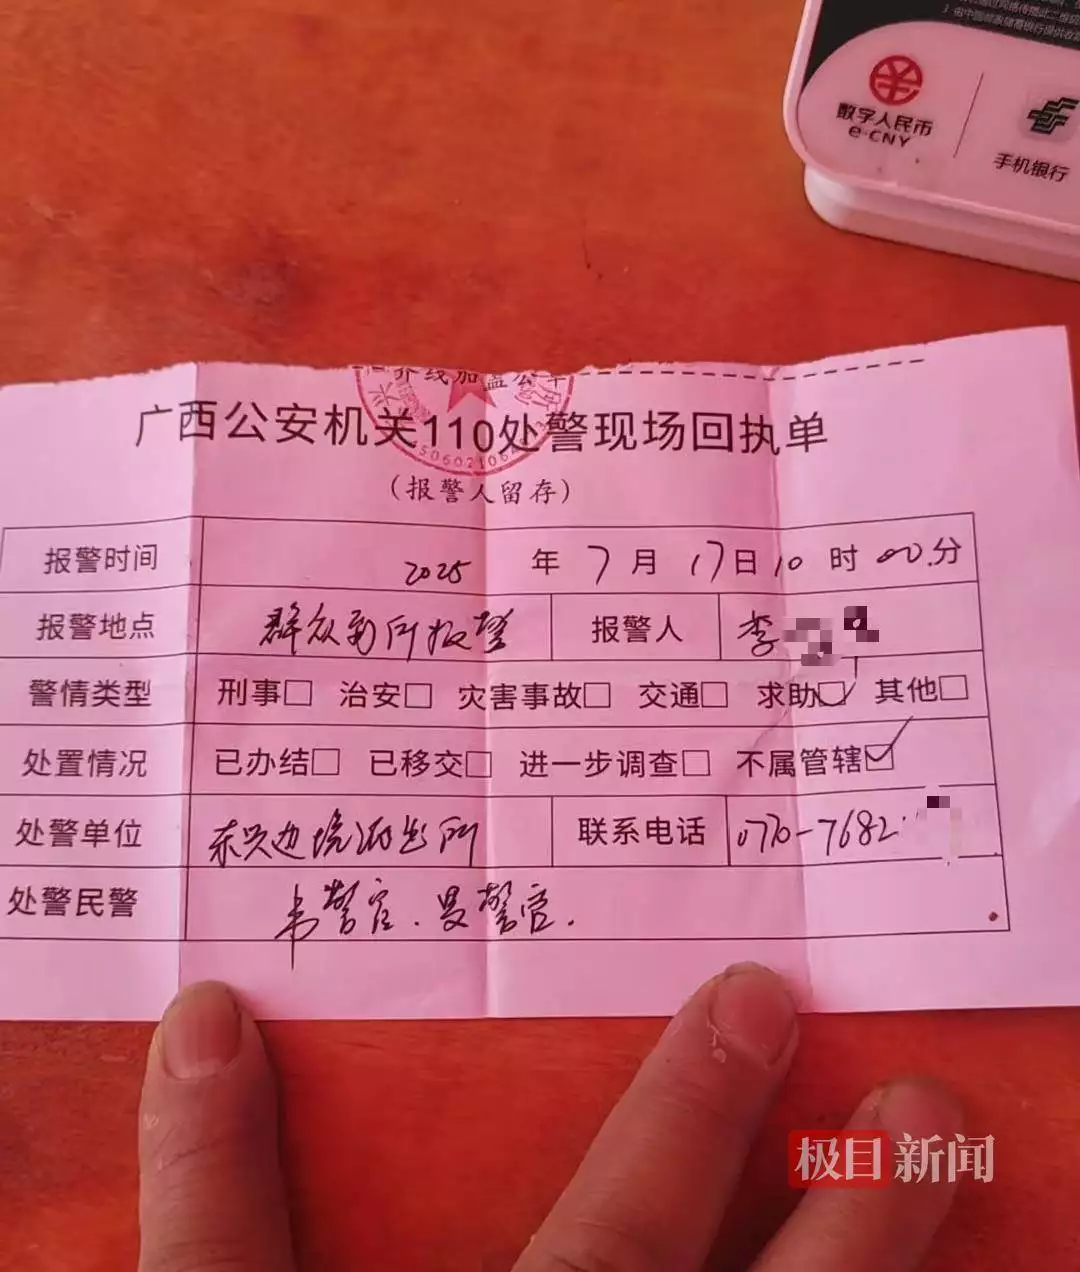 数字人民币
e-CNY
手机银行
界线加盖公章
广西公安机关110处警现场回执单
（报警人留存）
报警时间 2025 年 7 月 17 日 10 时 00 分
报警地点 群众到所报警 报警人 李
警情类型 刑事□ 治安□ 灾害事故□ 交通□ 求助☑ 其他□
处置情况 已办结□ 已移交□ 进一步调查□ 不属管辖☑
处警单位 东兴边境派出所 联系电话 0770-7682
处警民警 韦警官.
极目新闻